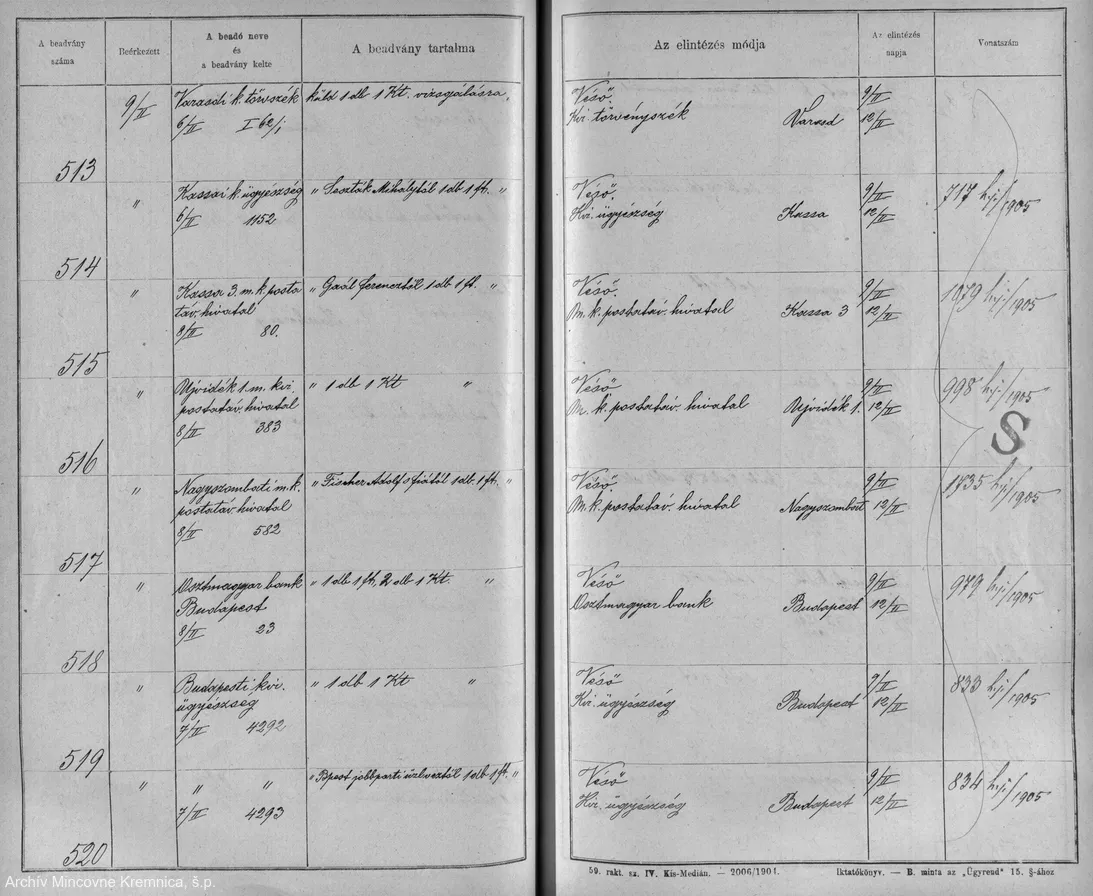 A beadvány száma
Beérkezett
A beadó neve és a beadvány kelte
A beadvány tartalma
Az elintézés módja
Az elintézés napja
Vonatszám
513
9/II
Varasdi k. törvszék
6/II I 62/1
küld 1 db 1 Kt. vizsgálásra,
Véső.
Kir. törvényszék Varasd
9/II
12/II
514
"
Kassai k. ügyészség
6/II 1152
" Leszták Mihálytól 1 db 1 ft. "
Véső.
Kir. ügyészség Kassa
9/II
12/II
717 /1905
515
"
Kassa 3. m. k. posta
táv. hivatal
8/II 80.
" Gaál Ferencztől 1 db 1 ft. "
Véső.
M. k. postatáv. hivatal Kassa 3
9/II
12/II
1079 /1905
516
"
Ujvidék 1. m. kir.
postatáv. hivatal
8/II 383
" 1 db 1 Kt "
Véső
M. k. postatáv. hivatal Ujvidék 1.
9/II
12/II
998 /1905
S
517
"
Nagyszombati m. k.
postatáv. hivatal
8/II 582
" Fischer Adolf s fiától 1 db 1 ft. "
Véső.
M. k. postatáv. hivatal Nagyszombat
9/II
12/II
1735 /1905
518
"
Osztmagyar bank
Budapest
8/II 23
" 1 db 1 ft, 2 db 1 Kt. "
Véső
Osztmagyar bank Budapest
9/II
12/II
979 /1905
519
"
Budapesti kir.
ügyészség
7/II 4292
" 1 db 1 Kt "
Véső
Kir. ügyészség Budapest
9/II
12/II
833 /1905
520
"
" "
7/II 4293
" Bpest jobbparti üzletveztől 1 db 1 ft. "
Véső
Kir. ügyészség Budapest
9/II
12/II
834 /1905
59. rakt. sz. IV. Kis-Medián. — 2006/1904.
Iktatókönyv. — B. minta az „Ügyrend" 15. §-ához
Archív Mincovne Kremnica, š.p.